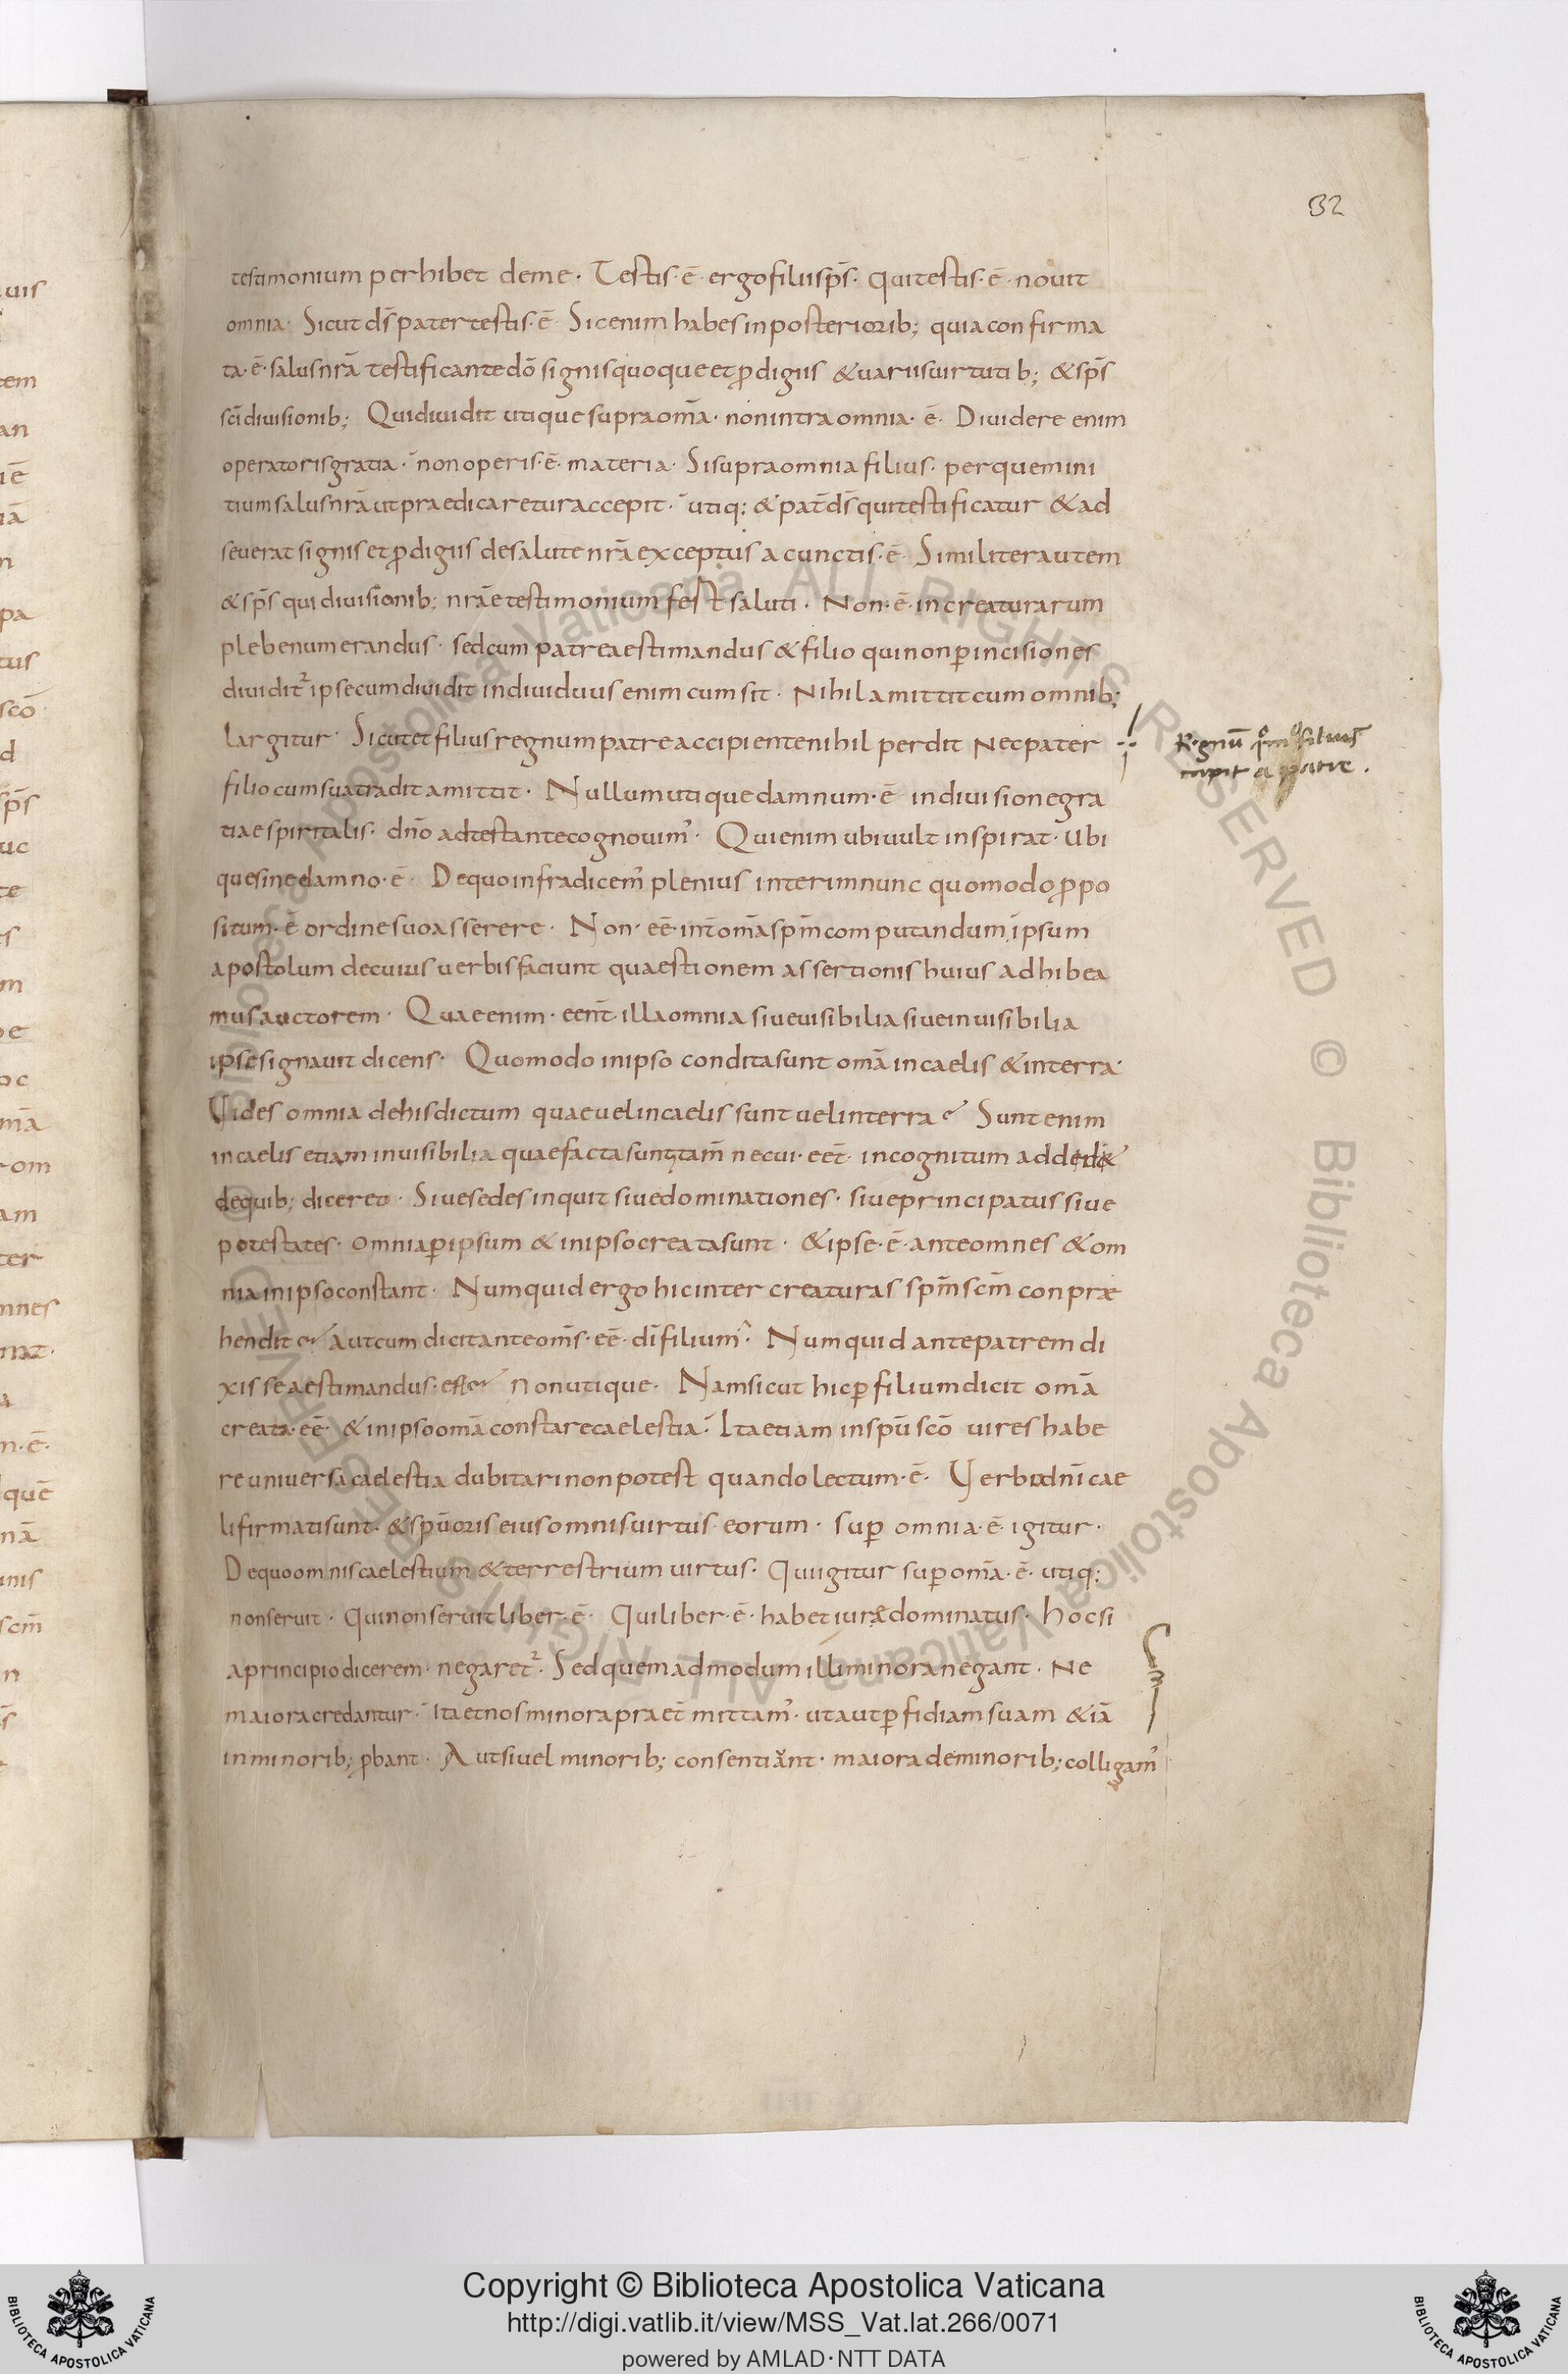 32
testimonium perhibet de me · Testis · ē · ergo filii sp̄s · qui testis · ē · novit
omnia · Sicut d̄s pater testis · ē · Sic enim habes in posteriorib; quia confirma
ta · ē · salus nr̄a testificante dō signis quoque et ꝓdigiis & variis virtutib; & sp̄s
sc̄i divisionib; Qui dividit utique supra om̄a · non intra omnia · ē · Dividere enim
operatoris gratia · non operis · ē · materia · Si supra omnia filius · per quem ini
tium salus nr̄a ut praedicaretur accepit · utiq; & pat̄ d̄s qui testificatur & ad
severat signis et ꝓdigiis de salute nr̄a exceptus a cunctis · ē · Similiter autem
& sp̄s qui divisionib; nr̄ae testimonium fert saluti · Non · ē · in creaturarum
plebe numerandus · sed cum patre aestimandus & filio qui non ꝑ incisiones
dividit² ipse cum dividit individuus enim cum sit · Nihil amittit cum omnib;
largitur · Sicut et filius regnum patre accipiente nihil perdit Nec pater
filio cum sua tradit amittit · Nullum utique damnum · ē · in divisione gra
tiae spiritalis · dn̄o adtestante cognovim᾽ · Qui enim ubi vult inspirat · Ubi
que sine damno · ē · De quo infra dicem᾽ plenius interim nunc quomodo ꝓpo
situm · ē ordine suo asserere · Non · eē · int̄ om̄a sp̄m computandum ipsum
apostolum de cuius verbis faciunt quaestionem assertionis huius adhibea
mus auctorem · Quae enim · eēnt · illa omnia sive visibilia sive invisibilia
ipse signavit dicens · Quomodo in ipso condita sunt om̄a in caelis & in terra ·
Vides omnia de his dictum quae vel in caelis sunt vel in terra Sunt enim
in caelis etiam invisibilia quae facta sunt tam̄ ne cui · eēt · incognitum
de quib; diceret · Sive sedes inquit sive dominationes · sive principatus sive
potestates · omnia ꝑ ipsum & in ipso creata sunt · & ipse · ē · ante omnes & om
nia in ipso constant · Numquid ergo hic inter creaturas sp̄m sc̄m conpræ
hendit Aut cum dicit ante om̄s · eē · dī filium · Numquid ante patrem di
xisse aestimandus · est Non utique · Nam sicut hic ꝑ filium dicit om̄a
creata · eē · & in ipso om̄a constare caelestia · Ita etiam in spū scō vires habe
re universa caelestia dubitari non potest quando lectum · ē · Verbo dn̄i cae
li firmati sunt · & spū oris eius omnis virtus eorum · suꝑ omnia · ē · igitur ·
De quo omnis caelestium & terrestrium virtus · Qui igitur suꝑ om̄a · ē · utiq;
non servit · Qui non servit liber · ē · Qui liber · ē · habet iure dominatus · Hoc si
a principio dicerem · negaret² · Sed quemadmodum illi minora negant · Ne
maiora credantur · Ita et nos minora praet̄mittam᾽ · ut aut ꝑfidiam suam & iā
in minorib; ꝓbant · Aut si vel minorib; consentiant · maiora de minorib; colligam᾽
Regnū filius
capit a patre .
Copyright © Biblioteca Apostolica Vaticana
http://digi.vatlib.it/view/MSS_Vat.lat.266/0071
powered by AMLAD·NTT DATA